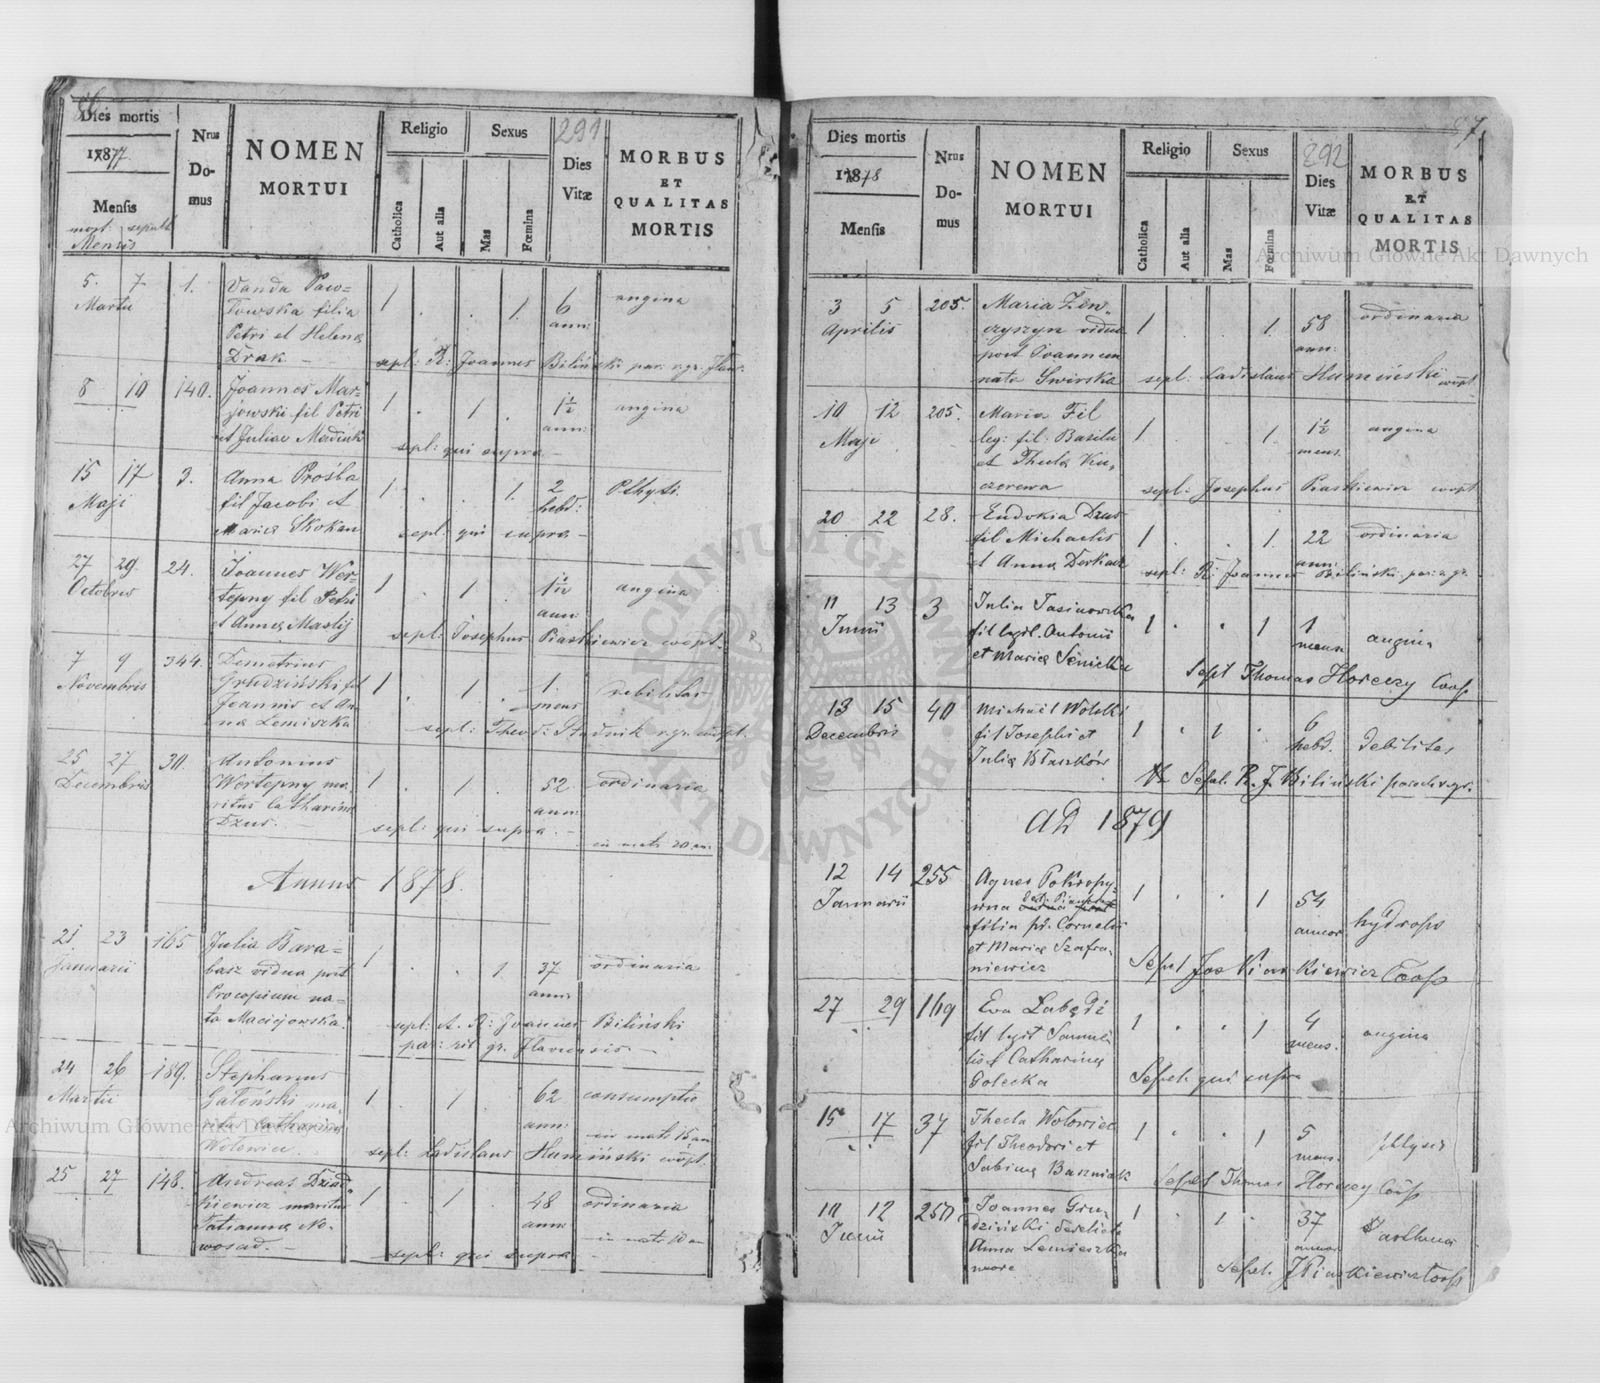 86
Dies mortis
1877
Mensis
mort: sepult:
Mensis
Nrus
Do-
mus
NOMEN
MORTUI
Religio
Catholica
Aut alia
Sexus
Mas
Fœmina
291
Dies
Vitæ
MORBUS
ET
QUALITAS
MORTIS
5. 7 1. Vanda Paw=
Martii
łowska filia
Petri et Helenæ
Drak
1 . . 1. 6
ann:
angina
sepl: R: Joannes Biliński par. r. gr. Flav:
8 10 140. Joannes Mar-
jowski fil Petri
et Juliae Medink
1 . 1 . 1½
ann:
angina
sepl: qui supra
15 17 3. Anna Prośba
Maji
fil Jacobi et
Mariæ Skokan
1 . . 1. 2
hebd:
Pthysi.
sepl: qui supra
27 29. 24. Joannes Wer-
Octobris
tepny fil Petri
et Annæ Maslij
1 . 1 . 1½
ann:
angina
sepl: Josephus Piaskiewicz coopt.
7 9 344. Demetrius
Novembris
Grudziński fil
Joannis et An-
næ Lemiszka
1 . 1 . 1.
mens
debilitas
sepl: Theod: Studnik r. gr. coopt.
25 27 30. Antonius
Decembris
Wertepny ma-
ritus Catharinæ
Dzus.
1 . 1 . 52
ann:
ordinaria
sepl: qui supra.
in matr 20 an:
Annus 1878.
21 23 165 Julia Bara=
Januarii
basz vidua post
Procopium na=
ta Maciejowska.
1 . . 1 37
anns
ordinaria
sepl: A. R: Joannes Biliński
par: rit gr. Flaviensis
24 26 189. Stephanus
Martii
Gałoński ma-
rit. Catharinæ
Wolowiec.
1 . 1 . 62
ann:
consumptio
in matr 15 an
sepl: Ladislaus Humiński coopt.
25 27 148. Andreas Dziad-
kiewicz maritus
Tatiannæ No-
wosad.
1 . 1 . 48
ann:
ordinaria
in matr 10 an
sepl: qui supra
87.
Dies mortis
1878
Mensis
Nrus
Do-
mus
NOMEN
MORTUI
Religio
Catholica
Aut alia
Sexus
Mas
Fœmina
292
Dies
Vitæ
MORBUS
ET
QUALITAS
MORTIS
3 5 205. Maria
Aprilis
vidua
post Joannem
nata Swirska
1 . . 1. 58
ann:
ordinaria
sepl: Ladislaus Humiński coopt.
10 12 205. Maria Fil
Maji
leg: fil: Basilii
et Theclæ Ku-
czerewa
1 . . 1. 1½
mens.
angina
sepl: Josephus Piaskiewicz coopt
20 22 28. Eudokia Dzus
fil Michaelis
et Annæ Derkacz
1 . . 1. 22
ann:
ordinaria
sepl: R: Joannes Biliński par: r. gr.
11 13 3 Julia Jasinowska
Junii
fil legit. Antonii
et Mariæ Senicka
1 . . 1 1
mens
angina
Sepl Thomas Horeczy Coop
13 15 40 Michael Wolski
Decembris
fil Josephi et
Juliæ
1 . 1 . 6
hebd.
debilitas
Sepel. R. J. Biliński paroch r gr.
AD 1879
12 14 255 Agnes Pokropy-
Januarii
wna
filia pr. Cornelii
et Mariæ Szafra-
niewicz
1 . . 1 54
annor
hydrops
Sepel Jos Piaskiewicz Coop
27 29 169 Eva Łabędź
fil legit Samue-
lis et Catharinæ
Golecka
1 . . 1 4
mens.
angina
Sepel. qui supra
15 17 37 Thecla Wolowiec
fil Theodori et
Sabinæ Baszniak
1 . . 1 5
mens.
phtysis
Sepel Thomas Horeczy Coop
10 12 250 Joannes Gru-
Junii
dziński
Anna Lemieszka
uxore
1 . 1 . 37
annor
asthma
Sepel. J Piaskiewicz Coop
Archiwum Główne Akt Dawnych
Archiwum Główne Akt Dawnych
ARCHIWUM GŁÓWNE AKT DAWNYCH